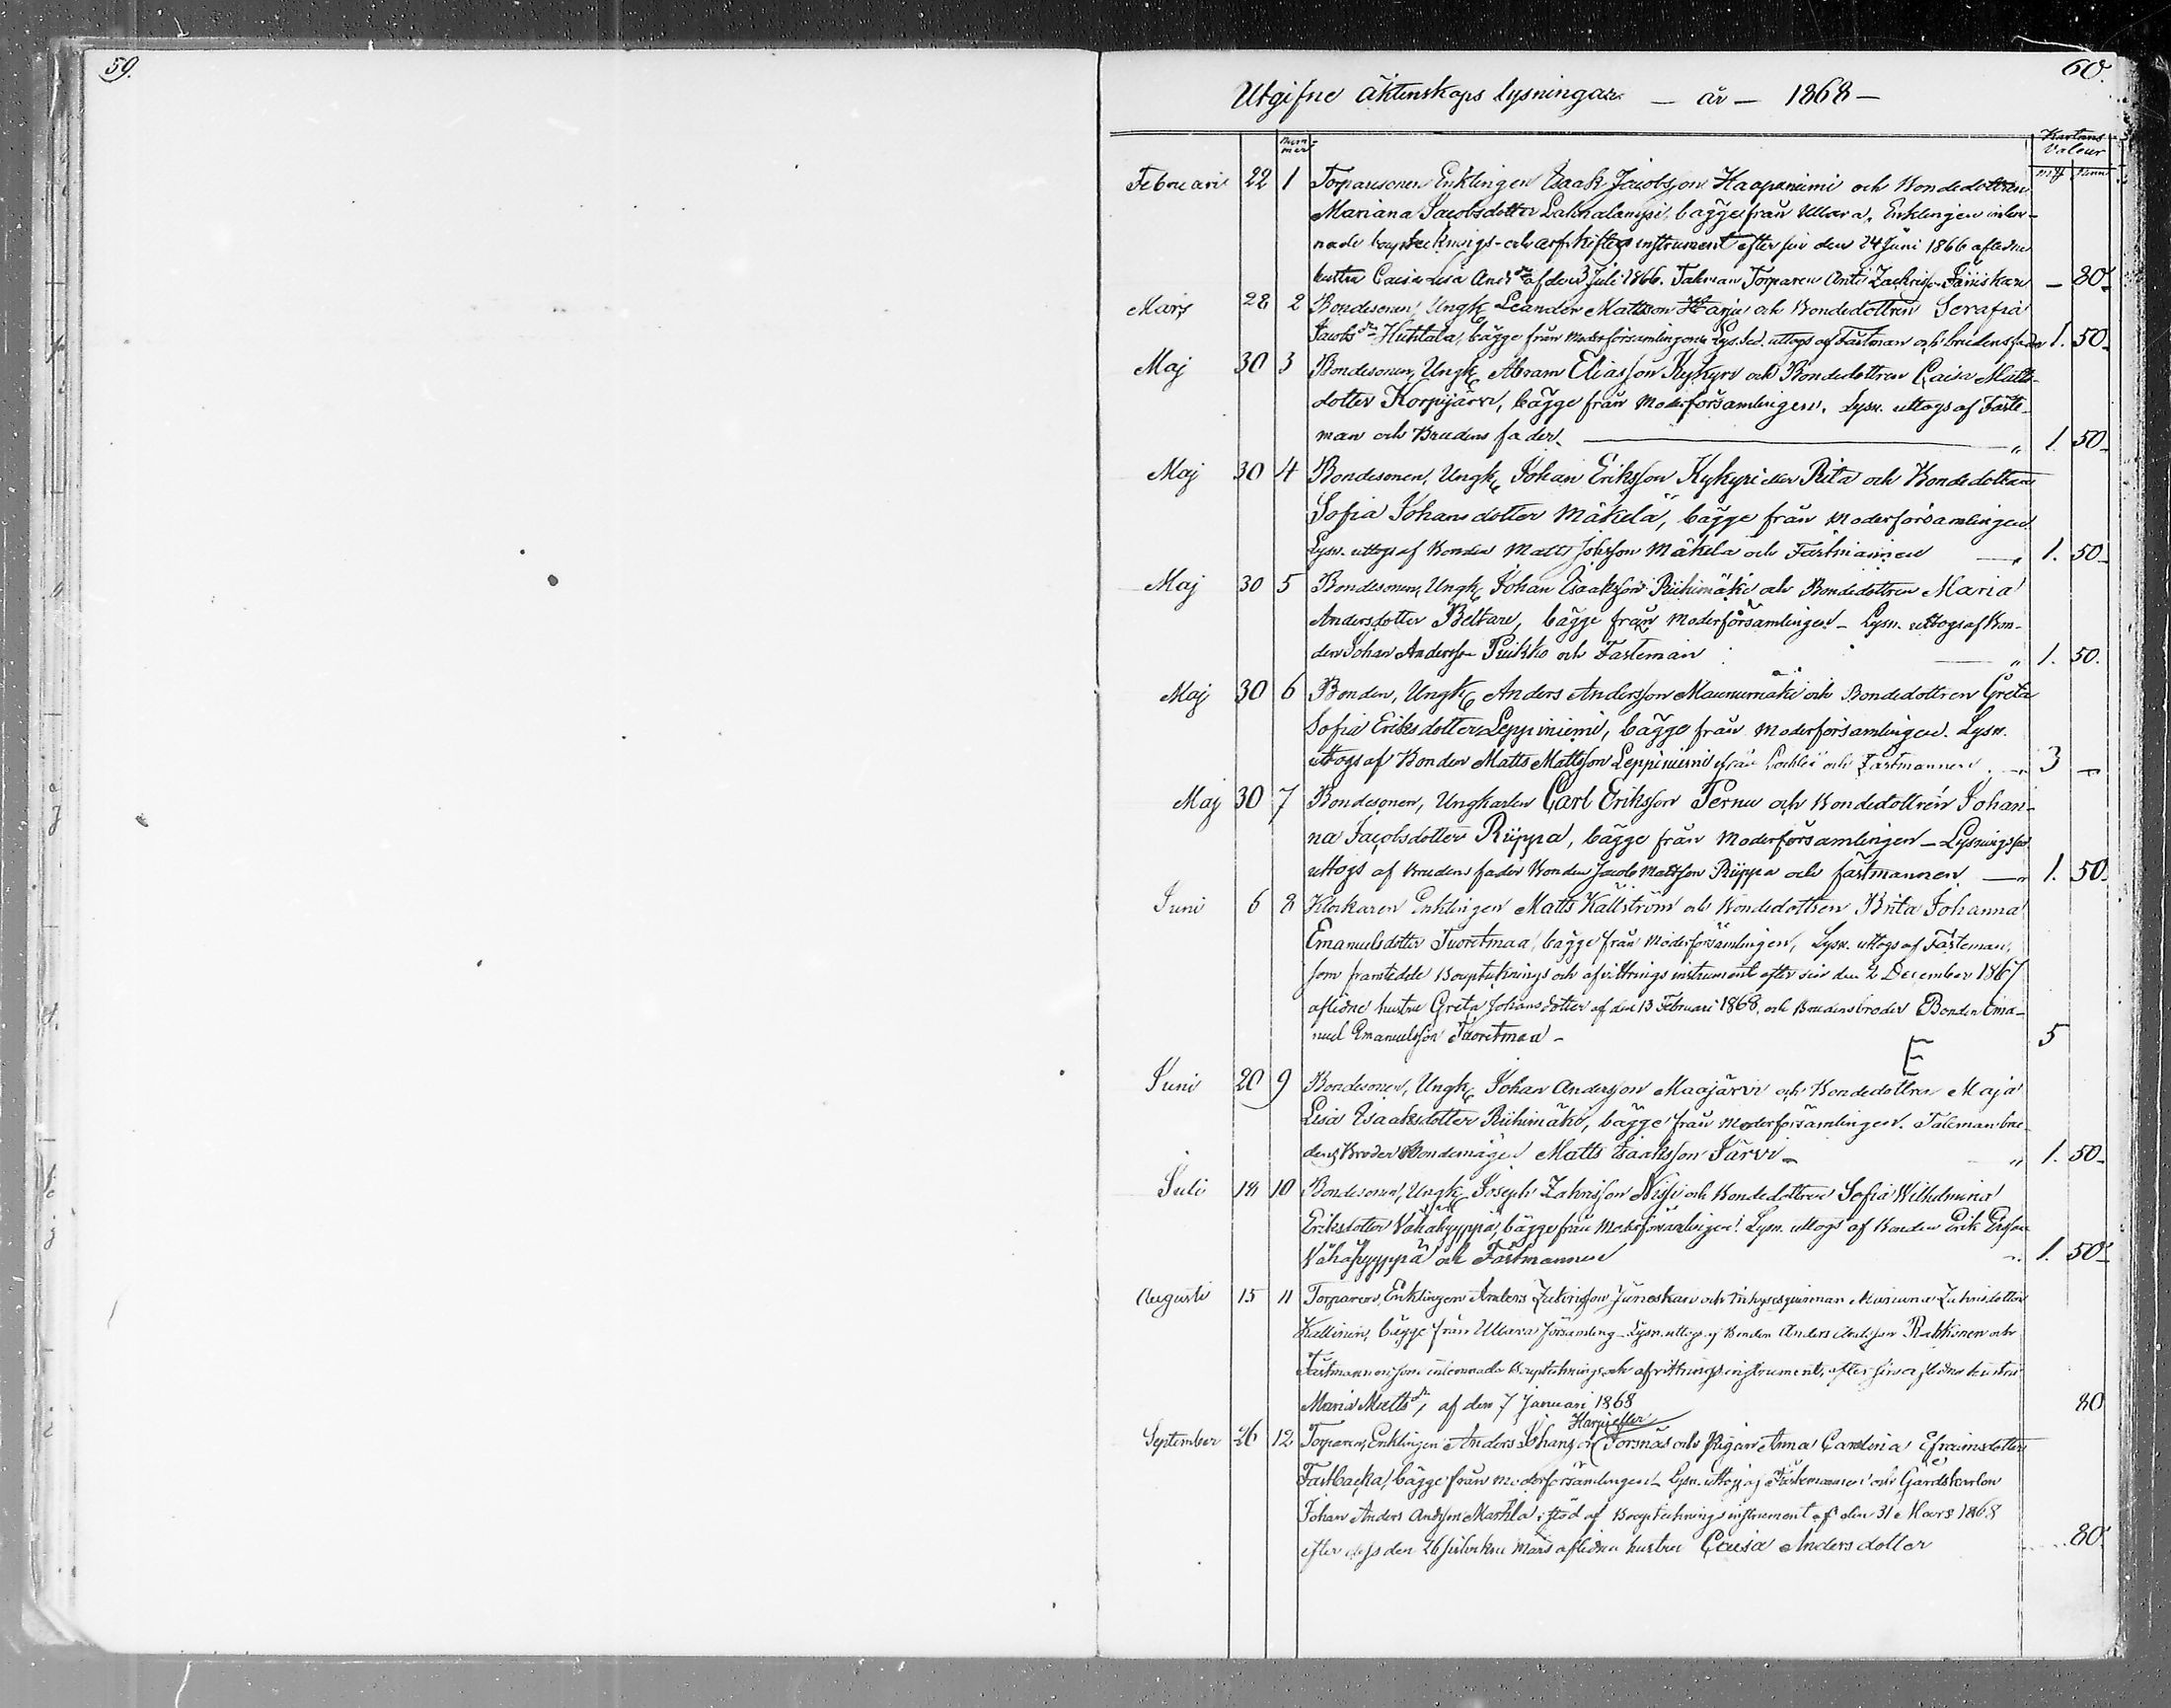 59.
60.
Utgifne äktenskaps lysningar — år — 1868 —
Nummer
Kartans Valeur
mk penni
Februari 22 1 Torparesonen Enklingen Isaak Jacobsson Haapaniemi och Bondedottren
Mariana Jacobsdotter Lahnalampi, bägge från Ullava. Enklingen inlem-
nade bouptecknings- och arfskiftes instrument efter sin den 24 Juni 1866 aflidne
hustru Caisa Lisa And.dr af den 3 Juli 1866. Talman Torparen Antti Zachriss. Jäniskan — 80
Mars 28 2 Bondesonen, Ungk. Leander Mattsson Harju och Bondedottren Serafia
Jacobs dr Huhtala, bägge från Moderförsamlingen. Lys.sed. uttogs af Fästman och brudens fader 1. 50
Maj 30 3 Bondesonen, Ungk. Abram Eliasson Kykyri och Bondedottren Caisa Matts-
dotter Korpijärvi, bägge från Moderförsamlingen. Lysn. uttogs af Fäste-
man och Brudens fader. — " 1. 50
Maj 30 4 Bondesonen, Ungk. Johan Eriksson Kykyri eller Rita och Bondedottren
Sofia Johansdotter Mäkelä, bägge från Moderförsamlingen.
Lysn. uttogs af Bonden Matts Johsson Mäkelä och Fästmannen — " 1. 50
Maj 30 5 Bondesonen, Ungk. Johan Isaaksson Riihimäki och Bondedottren Maria
Andersdotter Beltare, bägge från Moderförsamlingen — Lysn. uttogs af Bon-
den Johan Andersson Puikko och Fästeman — " 1. 50.
Maj 30 6 Bonden, Ungk. Anders Andersson Maunumäki och Bondedottren Greta
Sofia Eriksdotter Leppiniemi, bägge från Moderförsamlingen. Lysn.
uttogs af Bonden Matts Mattsson Leppiniemi ifrån och Fästmannen. — " 3 —
Maj 30 7 Bondesonen, Ungkarlen Carl Eriksson Pernu och Bondedottren Johan-
na Jacobsdotter Riippa, bägge från Moderförsamlingen — Lysningssed.
uttogs af Brudens fader Bonden Jacob Mattsson Riippa och fästmannen — " 1. 50.
Juni 6 8 Klockaren Enklingen Matts Källström och Bondedottren Brita Johanna
Emanuelsdotter Tuoretmaa, bägge från Moderförsamlingen, Lysn. uttogs af Fästeman,
som framtedde Bouptecknings och afvittrings instrument efter sin den 2 December 1867
aflidne hustru Greta Johansdotter af den 13 Februari 1868, och Brudens broder Bonden Ema-
nuel Emanuelsson Tuoretmaa — 5
E
Juni 20 9 Bondesonen, Ungk. Johan Andersson Maajärvi och Bondedottren Maja
Lisa Isaaksdotter Riihimäki, bägge från Moderförsamlingen. Taleman bru-
dens Broder Bondemågen Matts Isaaksson Järvi — " 1. 50
Juli 18 10 Bondesonen, Ungk. Joseph Zakrisson Nissi och Bondedottren Sofia Wilhelmina
Eriksdotter Vähähyyppä, bägge från Moderförsamlingen. Lysn. uttogs af Bonden Erik Ersson
Vähähyyppä och Fästmannen — " 1. 50
Augusti 15 11 Torparen, Enklingen Anders Zackrisson Jäneskan och Inhysesqvinnan Mariana Zakrisdotter
Kallinen, bägge från Ullava församling — Lysn. uttogs af Bonden Anders Andersson Rahkonen och
Fästmannen som inlemnade Bouptecknings och afvittringsinstrument, efter sin aflidne hustru
Maria Matts dr, af den 7 Januari 1868 80
September 26 12 Torparen, Enklingen Anders Johansson Harju eller Forsnäs och Pigan Anna Carolina Efraimsdotter
Fastbacka, bägge från moderförsamlingen — Lysn. uttogs af Fästemannen och Gårdskarlen
Johan Anders Andsson Markla i stöd af Bouptecknings instrument af den 31 Mars 1868
efter dess den 26 sistvikne Mars aflidna hustru Caisa Andersdotter 80